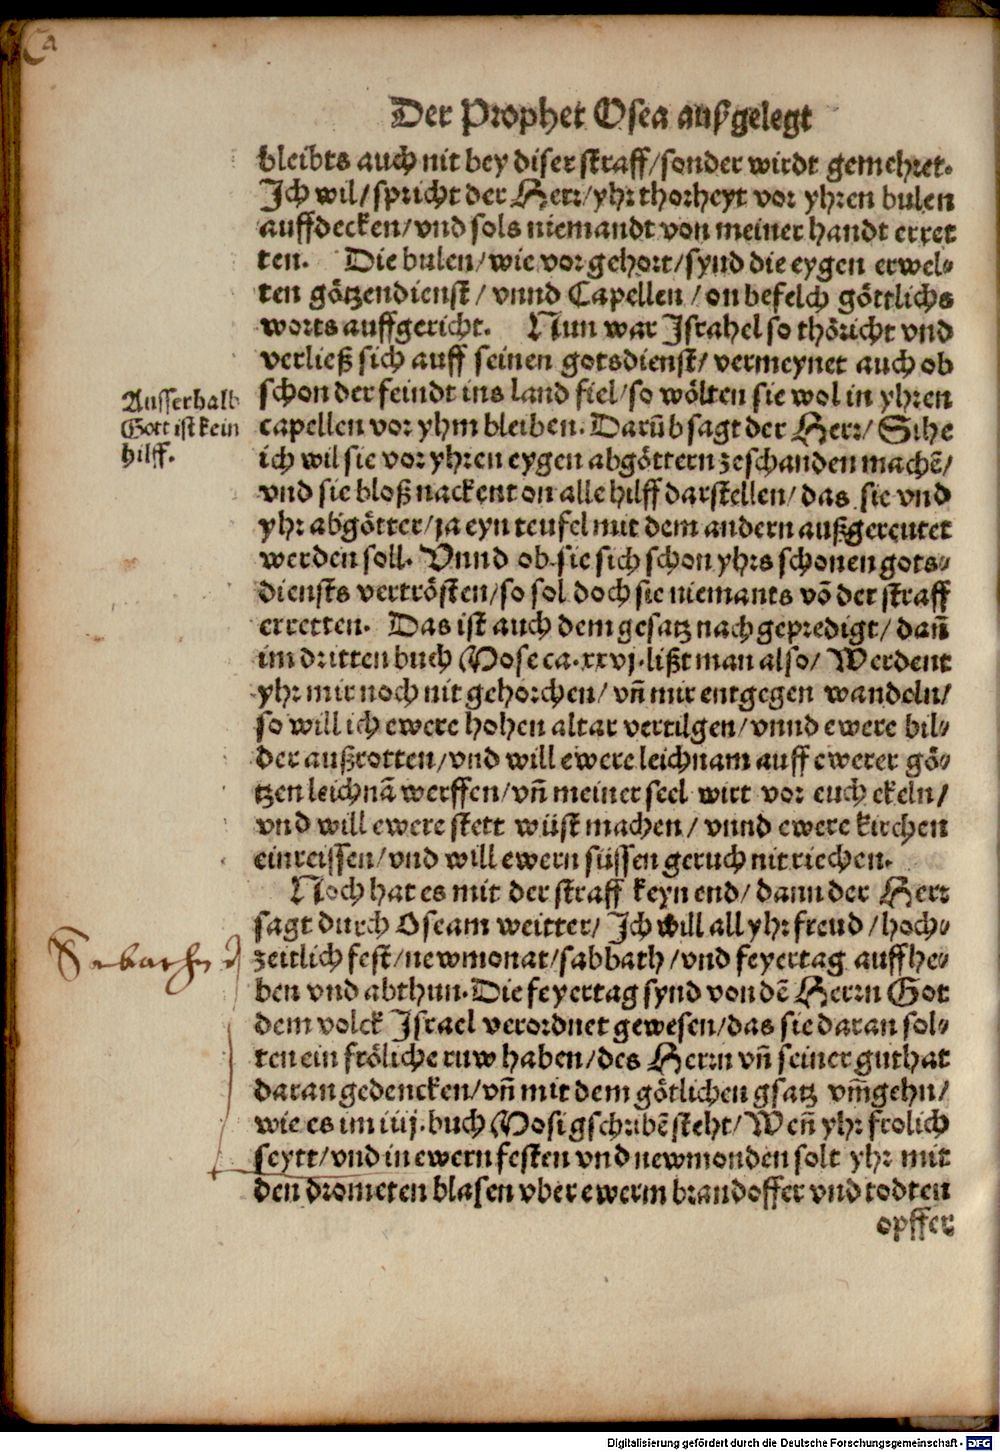 Der Prophet Osea außgelegt
bleibts auch nit bey diser straff/sonder wirdt gemehret.
Ich wil/spricht der Herr/yhr thorheyt vor yhren bulen
auffdecken/vnd sols niemandt von meiner handt erret
ten. Die bulen/wie vor gehort/synd die eygen erwel-
ten götzendienst/vnnd Capellen/on befelch göttlichs
worts auffgericht. Nun war Israhel so thöricht vnd
verließ sich auff seinen gotsdienst/vermeynet auch ob
schon der feindt ins land fiel/so wölten sie wol in yhren
capellen vor yhm bleiben. Darūb sagt der Herr/Sihe
ich wil sie vor yhren eygen abgöttern zeschanden machē/
vnd sie bloß nackent on alle hilff darstellen/das sie vnd
yhr abgötter/ja eyn teufel mit dem andern außgereutet
werden soll. Vnnd ob sie sich schon yhrs schonen gots-
diensts vertrösten/so sol doch sie niemants vō der straff
erretten. Das ist auch dem gesatz nach gepredigt/dañ
im dritten buch Mose ca.xxvj.lißt man also/Werdent
yhr mir noch nit gehorchen/vñ mir entgegen wandeln/
so will ich ewere hohen altar vertilgen/vnnd ewere bil-
der außrotten/vnd will ewere leichnam auff ewerer gö-
tzen leichnā werffen/vñ meiner seel wirt vor euch ekeln/
vnd will ewere stett wüst machen/vnnd ewere kirchen
einreissen/vnd will ewern süssen geruch nit riechen.
Noch hat es mit der straff keyn end/dann der Herr
sagt durch Oseam weitter/Ich will all yhr freud/hoch-
zeitlich fest/newmonat/sabbath/vnd feyertag auffhe-
ben vnd abthun. Die feyertag synd von dē Herrn Got
dem volck Israel verordnet gewesen/das sie daran sol-
ten ein fröliche ruw haben/des Herrn vñ seiner guthat
daran gedencken/vñ mit dem götlichen gsatz vm̄gehn/
wie es im iiij.buch Mosi gschribē steht/Weñ yhr frolich
seytt/vnd in ewern festen vnd newmonden solt yhr mit
den drometen blasen vber ewerm brandoffer vnd todten
opffer
Ausserhalb
Gott ist kein
hilff.